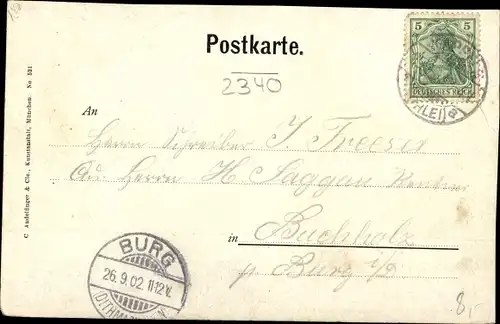 Postkarte.
2340
5 5
DEUTSCHES REICH
An
Herrn Schreiber J. Freese
Adr. Herrn H. Saggau Rentner
in Buchholz
p Burg i/D
BURG
26.9.02.11-12V.
(DITHMARSCHEN)
8,-
C. Andelfinger & Cie., Kunstanstalt, München. No 521